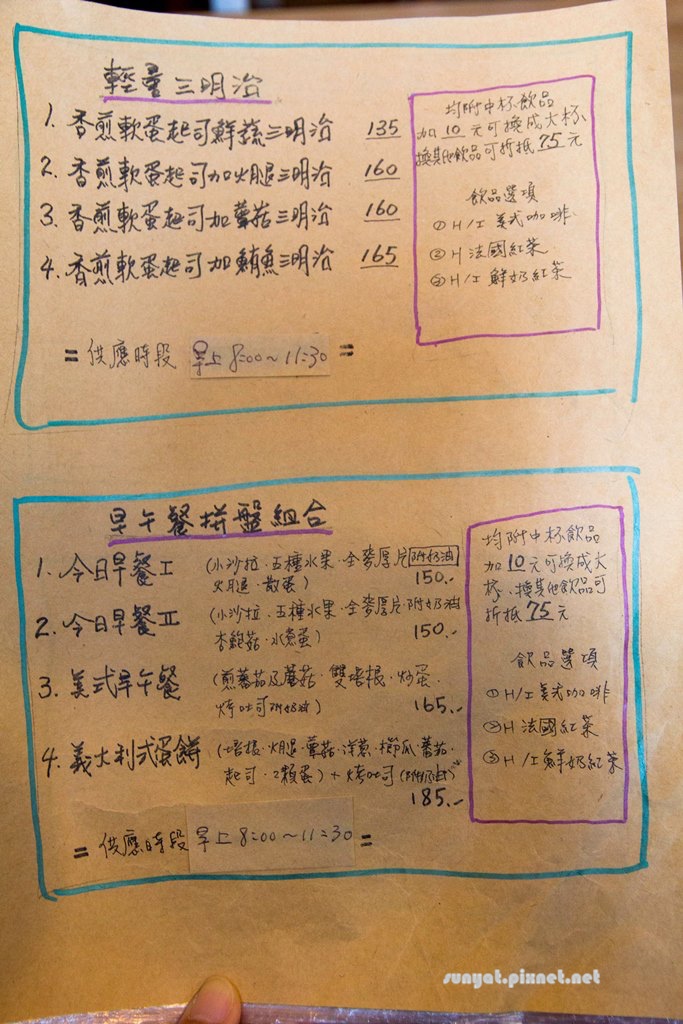 輕量三明治
1. 香煎軟蛋起司鮮蔬三明治 135
2. 香煎軟蛋起司加火腿三明治 160
3. 香煎軟蛋起司加蘑菇三明治 160
4. 香煎軟蛋起司加鮪魚三明治 165
= 供應時段 早上 8:00~11:30 =
均附中杯飲品
加 10 元可換成大杯、
換其他飲品可折抵 75 元
飲品選項
① H/I 美式咖啡
② H 法國紅茶
③ H/I 鮮奶紅茶
早午餐拼盤組合
1. 今日早餐 I (小沙拉．五種水果．全麥厚片附奶油
火腿．散蛋) 150.-
2. 今日早餐 II (小沙拉．五種水果．全麥厚片．附奶油
杏鮑菇．水煮蛋) 150.-
3. 美式早午餐 (煎蕃茄及蘑菇．雙培根．炒蛋．
烤吐司附奶油) 165.-
4. 義大利式蛋餅 (培根．火腿．蘑菇．洋蔥．櫛瓜．蕃茄．
起司．2顆蛋) + 烤吐司 (附奶油)
185.-
= 供應時段 早上 8:00~11:30 =
均附中杯飲品
加 10 元可換成大
杯、換其他飲品可
折抵 75 元
飲品選項
① H/I 美式咖啡
② H 法國紅茶
③ H/I 鮮奶紅茶
sunyat.pixnet.net